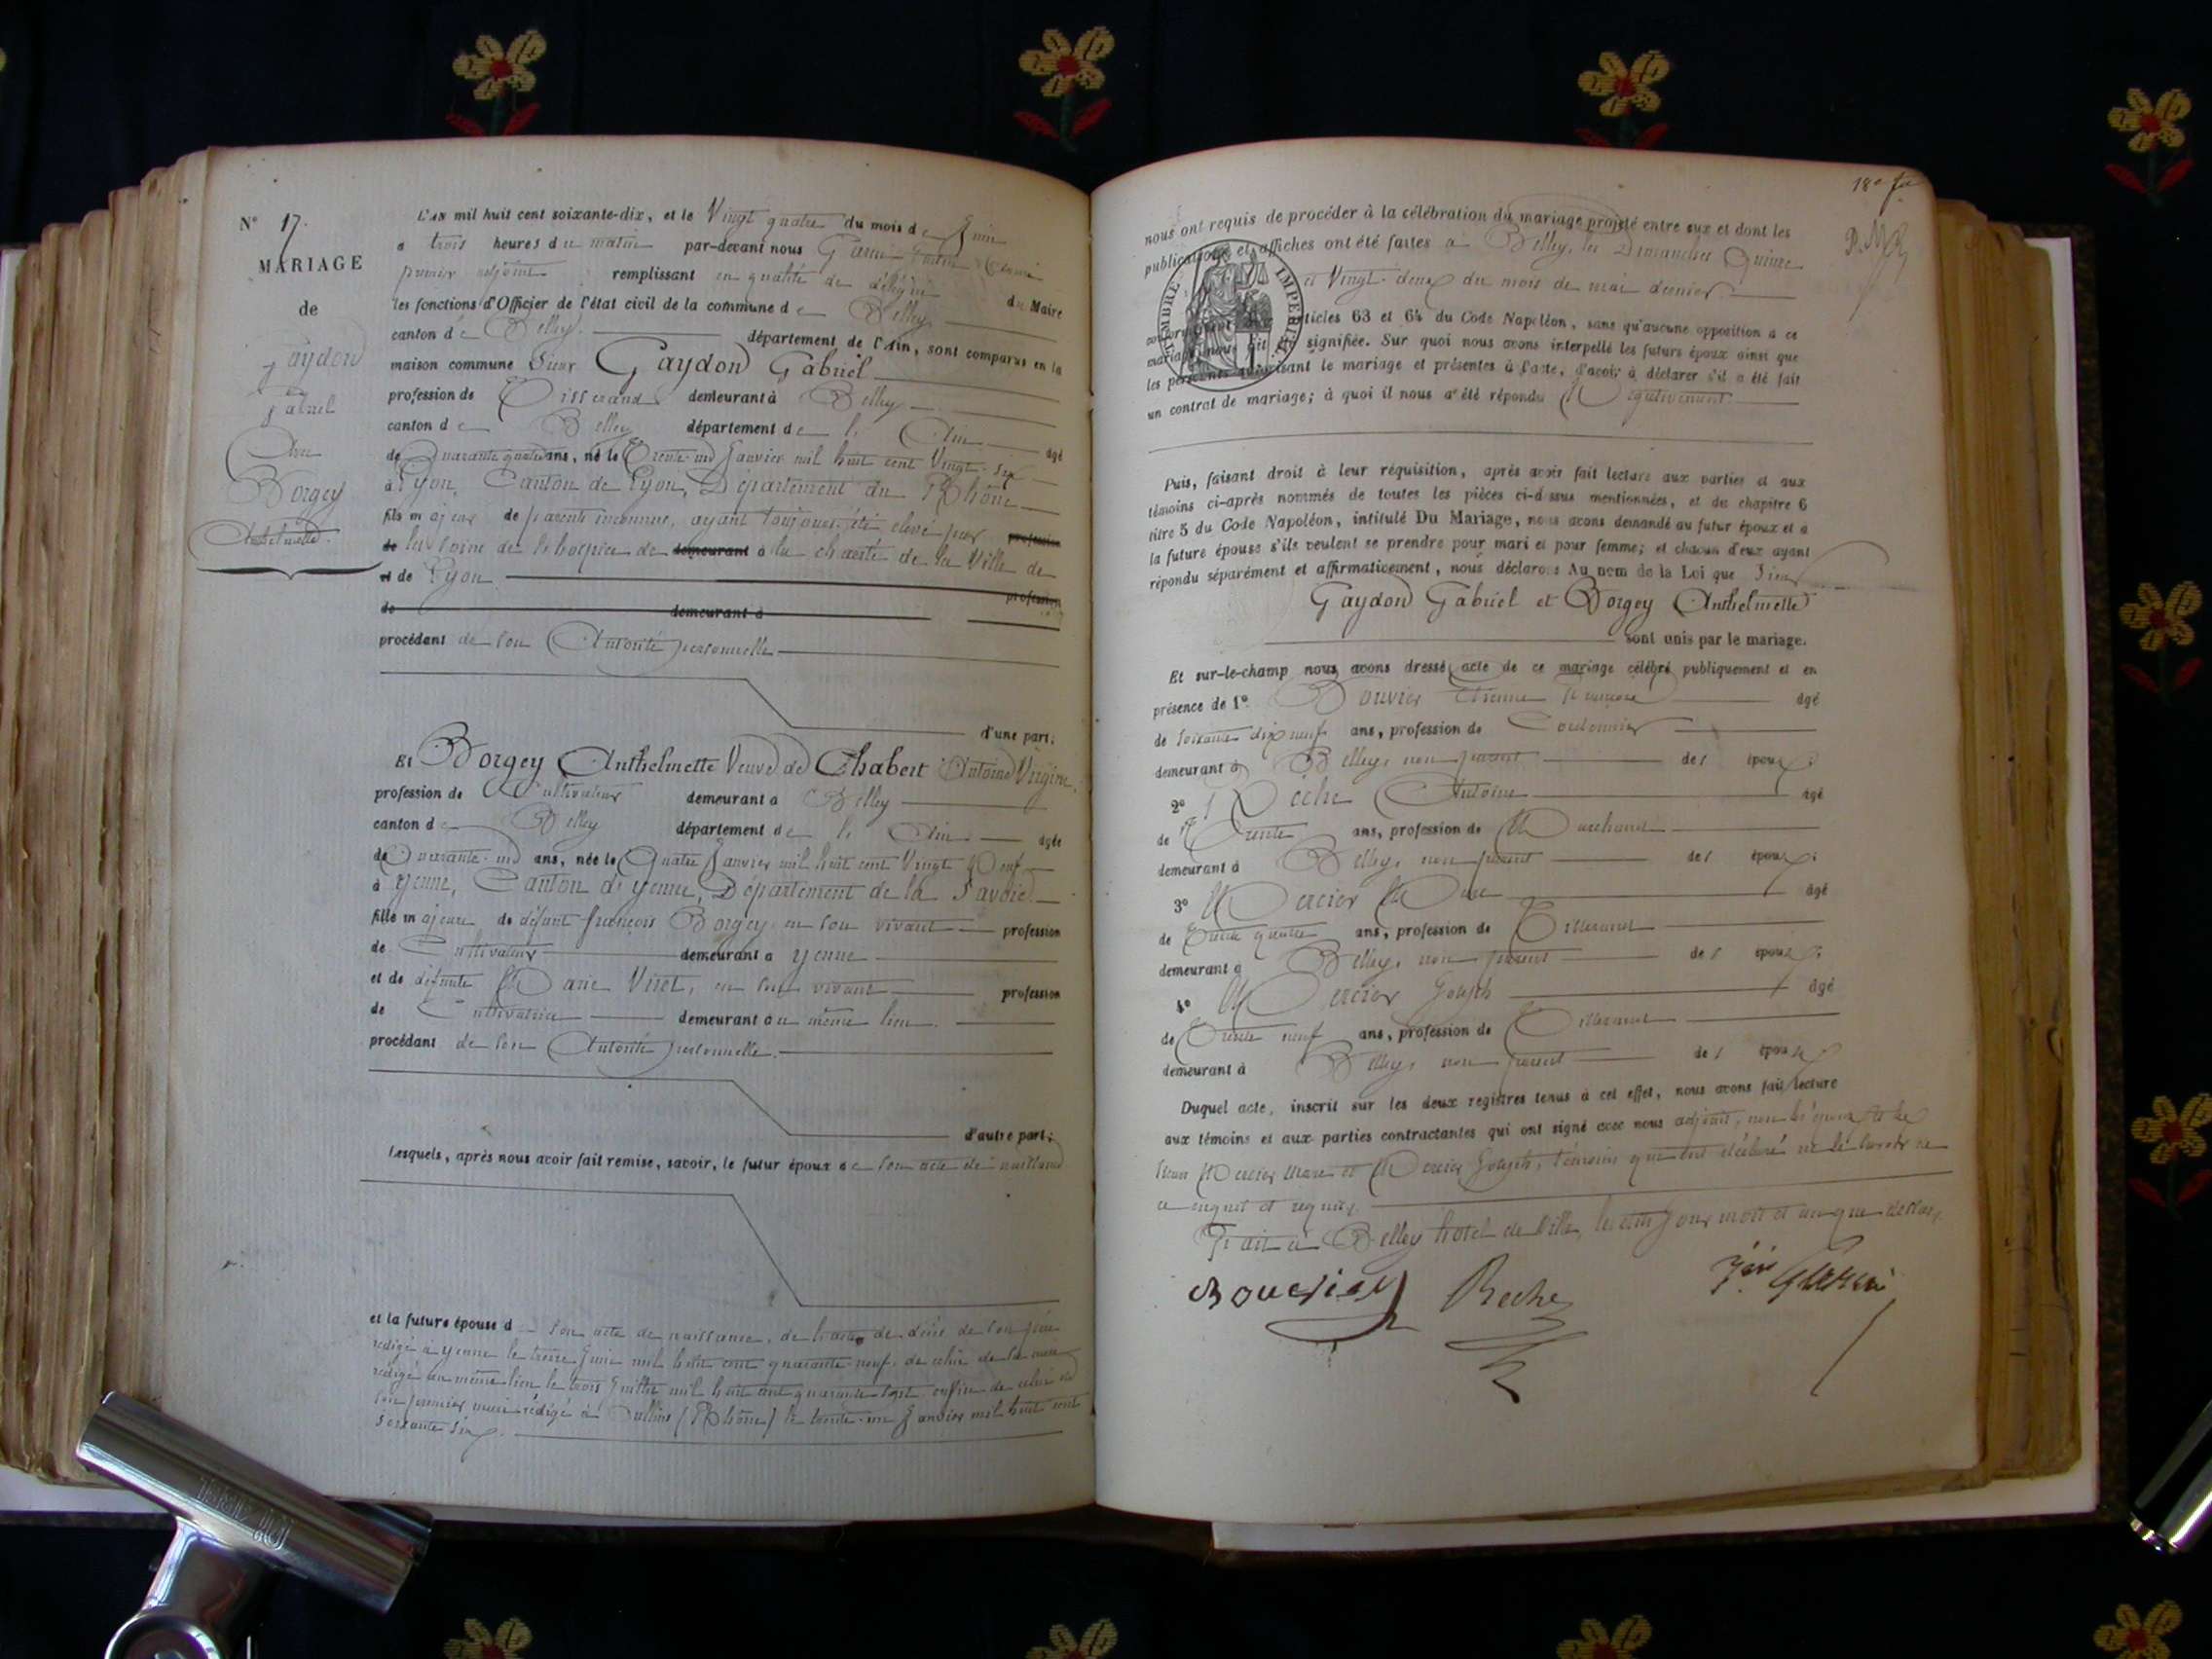 N° 17.
MARIAGE
de
Gaydon
Gabriel
Avec
Borgey
Anthelmette.
L'AN mil huit cent soixante-dix, et le Vingt quatre du mois de Juin
à trois heures du matin par-devant nous
premier adjoint remplissant en qualité de délégué du Maire
les fonctions d'Officier de l'état civil de la commune de Belley
canton de Belley département de l'Ain, sont comparus en la
maison commune Sieur Gaydon Gabriel
profession de Tisserand demeurant à Belley
canton de Belley département de l'Ain âgé
de Quarante quatre ans, né le Trente-un Janvier mil huit cent Vingt-six
à Lyon, Canton de Lyon, Département du Rhône
fils majeur de parents inconnus, ayant toujours été élevé par profession
de les soins de l'hospice de demeurant à la charité de la Ville de
et de Lyon
profession
de demeurant à
procédant de son Autorité personnelle
d'une part;
Et Borgey Anthelmette Veuve de Chabert Antoine Virgine
profession de Cultivateur demeurant à Belley
canton de Belley département de l'Ain âgée
de Quarante-un ans, née le Quatre Janvier mil huit cent Vingt Neuf
à Yenne, Canton de Yenne, Département de la Savoie
fille majeure de défunt françois Borgey en son vivant profession
de Cultivateur demeurant à Yenne
et de défunte Marie Viret, en son vivant profession
de Cultivatrice demeurant au même lieu.
procédant de son Autorité personnelle.
d'autre part;
Lesquels, après nous avoir fait remise, savoir, le futur époux de son acte de naissance
et la future épouse d son acte de naissance, de l'acte de décès de son père
rédigé à Yenne le treize Juin mil huit cent quarante-neuf, de celui de sa mère
rédigé au même lieu le trois Juillet mil huit cent quarante sept enfin de celui de
son premier mari rédigé à Oullins (Rhône) le trente-un Janvier mil huit cent
soixante six.
nous ont requis de procéder à la célébration du mariage projeté entre eux et dont les
publications et affiches ont été faites à Belley, les Dimanches Quinze
et Vingt-deux du mois de mai dernier.
TIMBRE IMPÉRIAL
articles 63 et 64 du Code Napoléon, sans qu'aucune opposition à ce
mariage nous ait signifiée. Sur quoi nous avons interpellé les futurs époux ainsi que
les personnes autorisant le mariage et présentes à l'acte, d'avoir à déclarer s'il a été fait
un contrat de mariage; à quoi il nous a été répondu Négativement.
Puis, faisant droit à leur réquisition, après avoir fait lecture aux parties et aux
témoins ci-après nommés de toutes les pièces ci-dessus mentionnées, et du chapitre 6
titre 5 du Code Napoléon, intitulé Du Mariage, nous avons demandé au futur époux et à
la future épouse s'ils veulent se prendre pour mari et pour femme; et chacun d'eux ayant
répondu séparément et affirmativement, nous déclarons Au nom de la Loi que Sieur
Gaydon Gabriel et Borgey Anthelmette
sont unis par le mariage.
Et sur-le-champ nous avons dressé acte de ce mariage célébré publiquement et en
présence de 1° Bouvier Etienne âgé
de soixante dix neuf ans, profession de Cordonnier
demeurant à Belley, non parent des époux;
2° Rèche Antoine âgé
de Trente ans, profession de Marchand
demeurant à Belley, non parent des époux;
3° Mercier Marc âgé
de Trente quatre ans, profession de Tisserand
demeurant à Belley, non parent des époux;
4° Mercier Joseph âgé
de Trente neuf ans, profession de Tisserand
demeurant à Belley, non parent des époux
Duquel acte, inscrit sur les deux registres tenus à cet effet, nous avons fait lecture
aux témoins et aux parties contractantes qui ont signé avec nous adjoint, non les époux et les
Sieurs Mercier Marc et Mercier Joseph, témoins qui ont déclaré ne le savoir de
ce enquis et requis.
Fait à Belley hôtel de Ville, les dits Jour mois et an que dessus.
Bouvier Reche